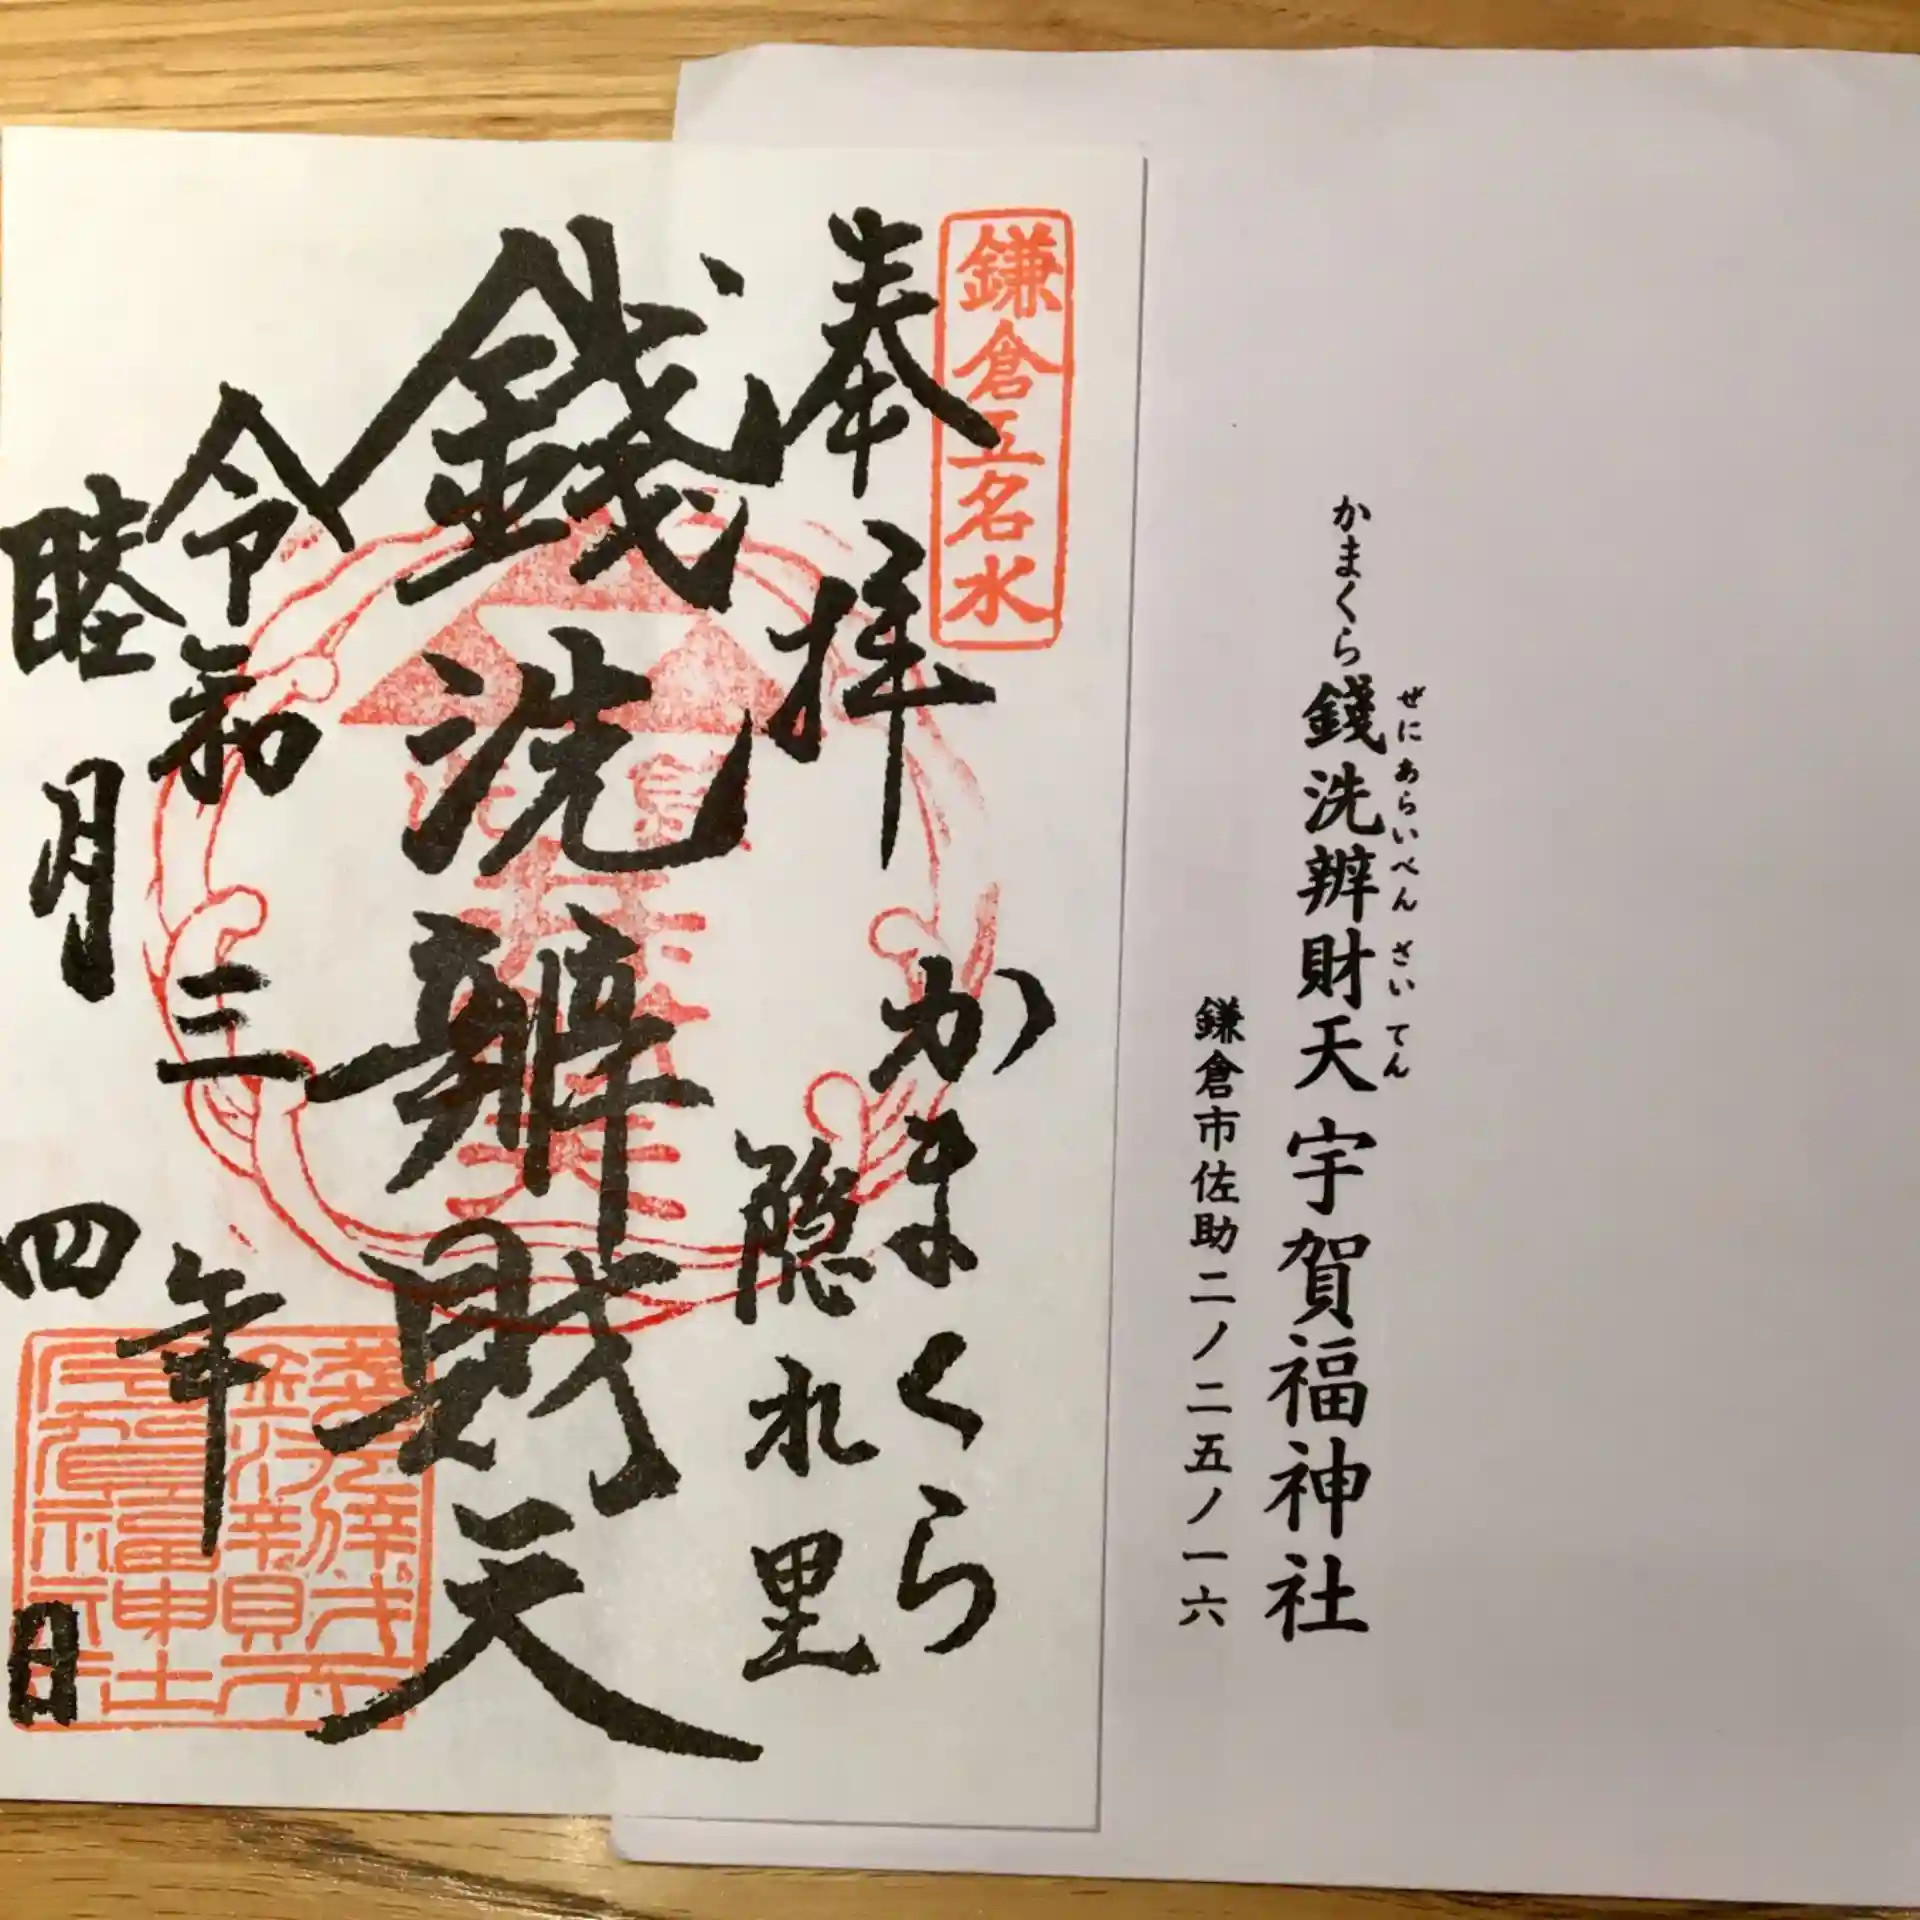 かまくら銭洗辨財天宇賀福神社
ぜにあらいべんざいてん
鎌倉市佐助二ノ二五ノ一六
鎌倉五名水
奉拝
かまくら
隠れ里
銭洗辨財天
令和三年
睦月四日